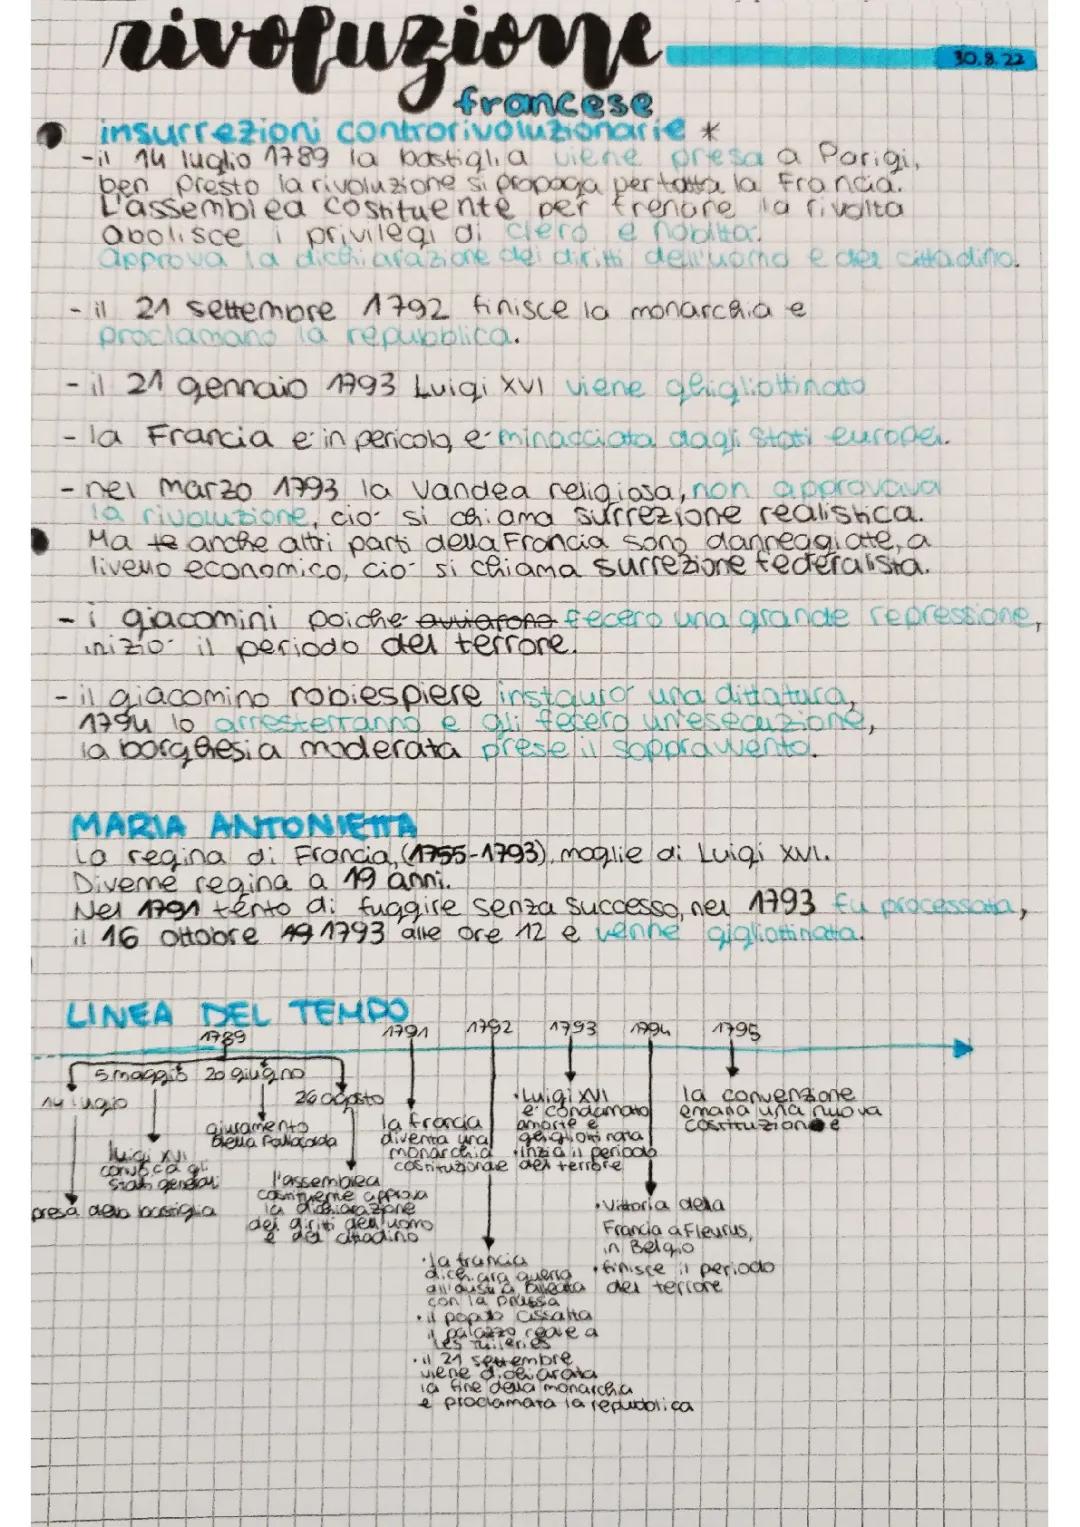 rivoluzione
30.8.22
francese
insurrezioni controrivoluzionarie *
-il 14 luglio 1789 la bastiglia viene presa a Parigi,
ben presto la rivoluzione si propaga per tutta la Francia.
L'assemblea costituente per frenare la rivolta
abolisce i privilegi di clero e nobiltà.
approva la dichiarazione dei diritti dell'uomo e del cittadino.
- il 21 settembre 1792 finisce la monarchia e
proclamano la repubblica.
- il 21 gennaio 1793 Luigi XVI viene ghigliottinato
- la Francia è in pericolo, è minacciata dagli Stati europei.
- nel marzo 1793 la Vandea religiosa, non approvava
la rivoluzione, ciò si chiama surrezione realistica.
Ma te anche altri parti della Francia sono danneggiate, a
livello economico, ciò si chiama surrezione federalista.
- i giacomini poiché avviarono fecero una grande repressione,
iniziò il periodo del terrore.
- il giacomino robiespiere instaurò una dittatura,
1794 lo arresterranno e gli fecero un'esecuzione,
la borghesia moderata prese il soppravvento.
MARIA ANTONIETTA
La regina di Francia, (1755-1793), moglie di Luigi XVI.
Divenne regina a 19 anni.
Nel 1791 tentò di fuggire senza successo, nel 1793 fu processata,
il 16 ottobre 19 1793 alle ore 12 e venne gigliottinata.
LINEA DEL TEMPO
1789 1791 1792 1793 1794 1795
5 maggio 20 giugno
14 luglio
26 agosto
giuramento
della Pallacorda
luigi XVI
convoca gli
stati generali
presa della bastiglia
l'assemblea
costituente approva
la dichiarazione
dei diritti dell'uomo
e del cittadino
la francia
diventa una
monarchia
costituzionale
• la francia
dichiara guerra
all'austria alleata
con la prussia
• il popolo assalta
il palazzo reale a
Les tuileries
• il 21 settembre
viene dichiarata
la fine della monarchia
e proclamata la repubblica
• Luigi XVI
è condannato
a morte e
ghigliottinato
• inizia il periodo
del terrore
• Vittoria della
Francia a Fleurus,
in Belgio
• finisce il periodo
del terrore
la convenzione
emana una nuova
costituzione